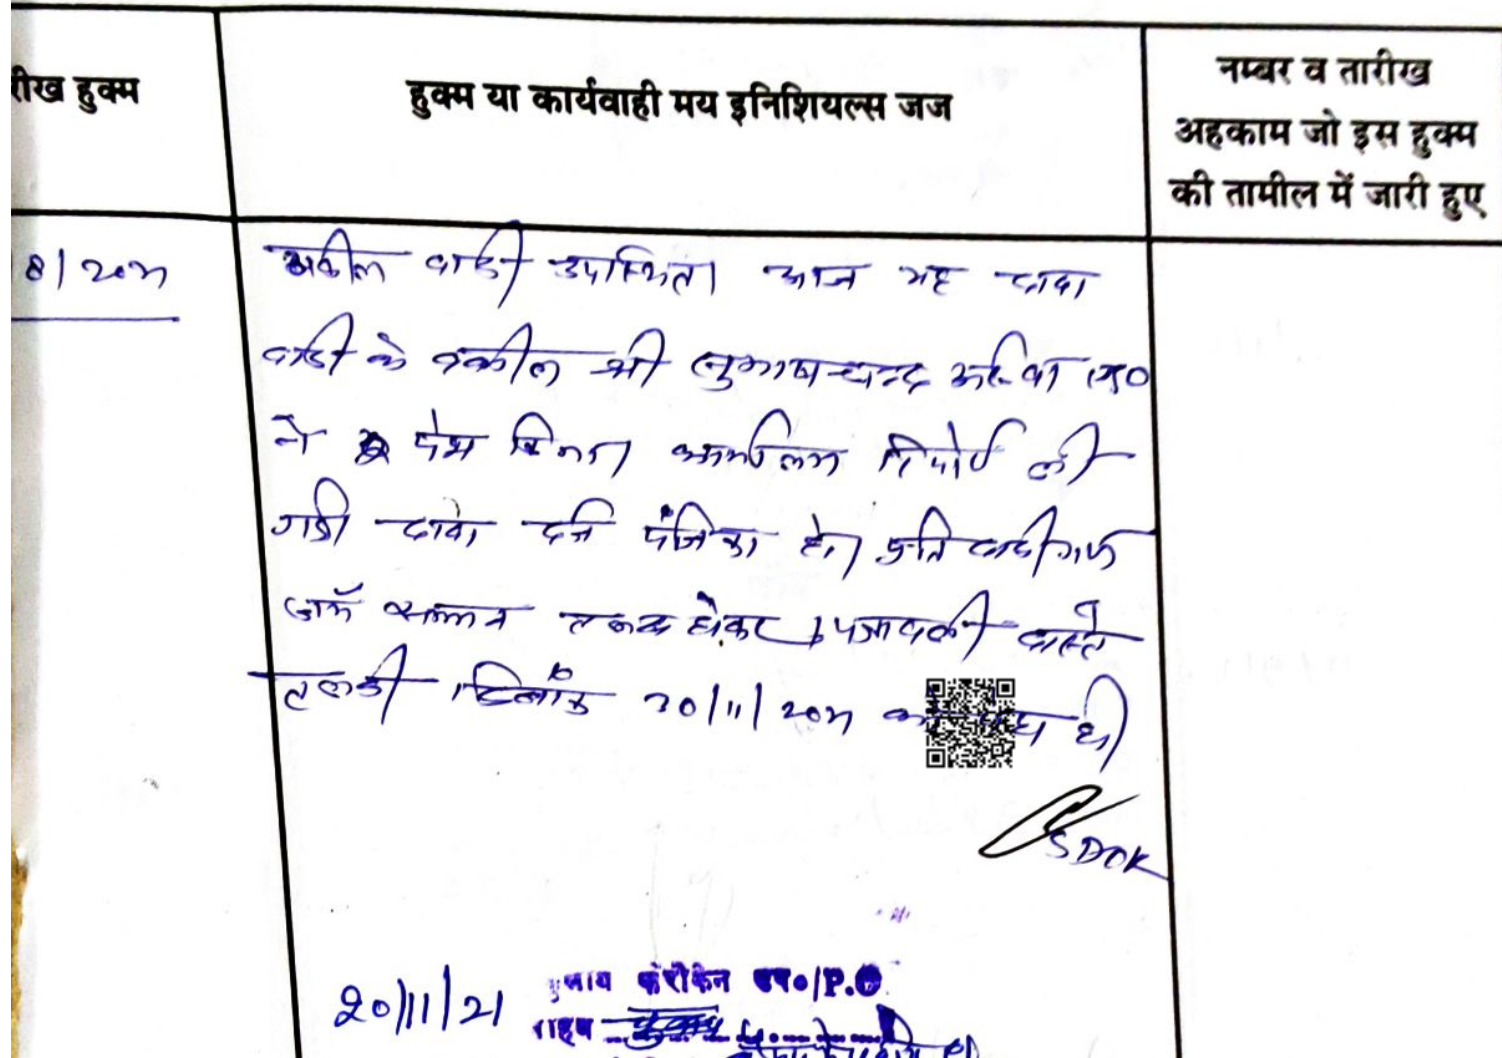 रीख हुक्म
हुक्म या कार्यवाही मय इनिशियल्स जज
नम्बर व तारीख
अहकाम जो इस हुक्म
की तामील में जारी हुए
वकील वादी उपस्थित। आज यह दावा
वादी के वकील श्री सुभाषचन्द्र एड०
ने पेश किया। रिपोर्ट ली
गयी दावा दर्ज पंजिका हो। प्रतिवादीगण
जर्ये सम्मन तलब होकर पत्रावली वास्ते
तलबी दिनांक 20/11/2021 को पेश हो।
SDOK
20/11/21
P.O